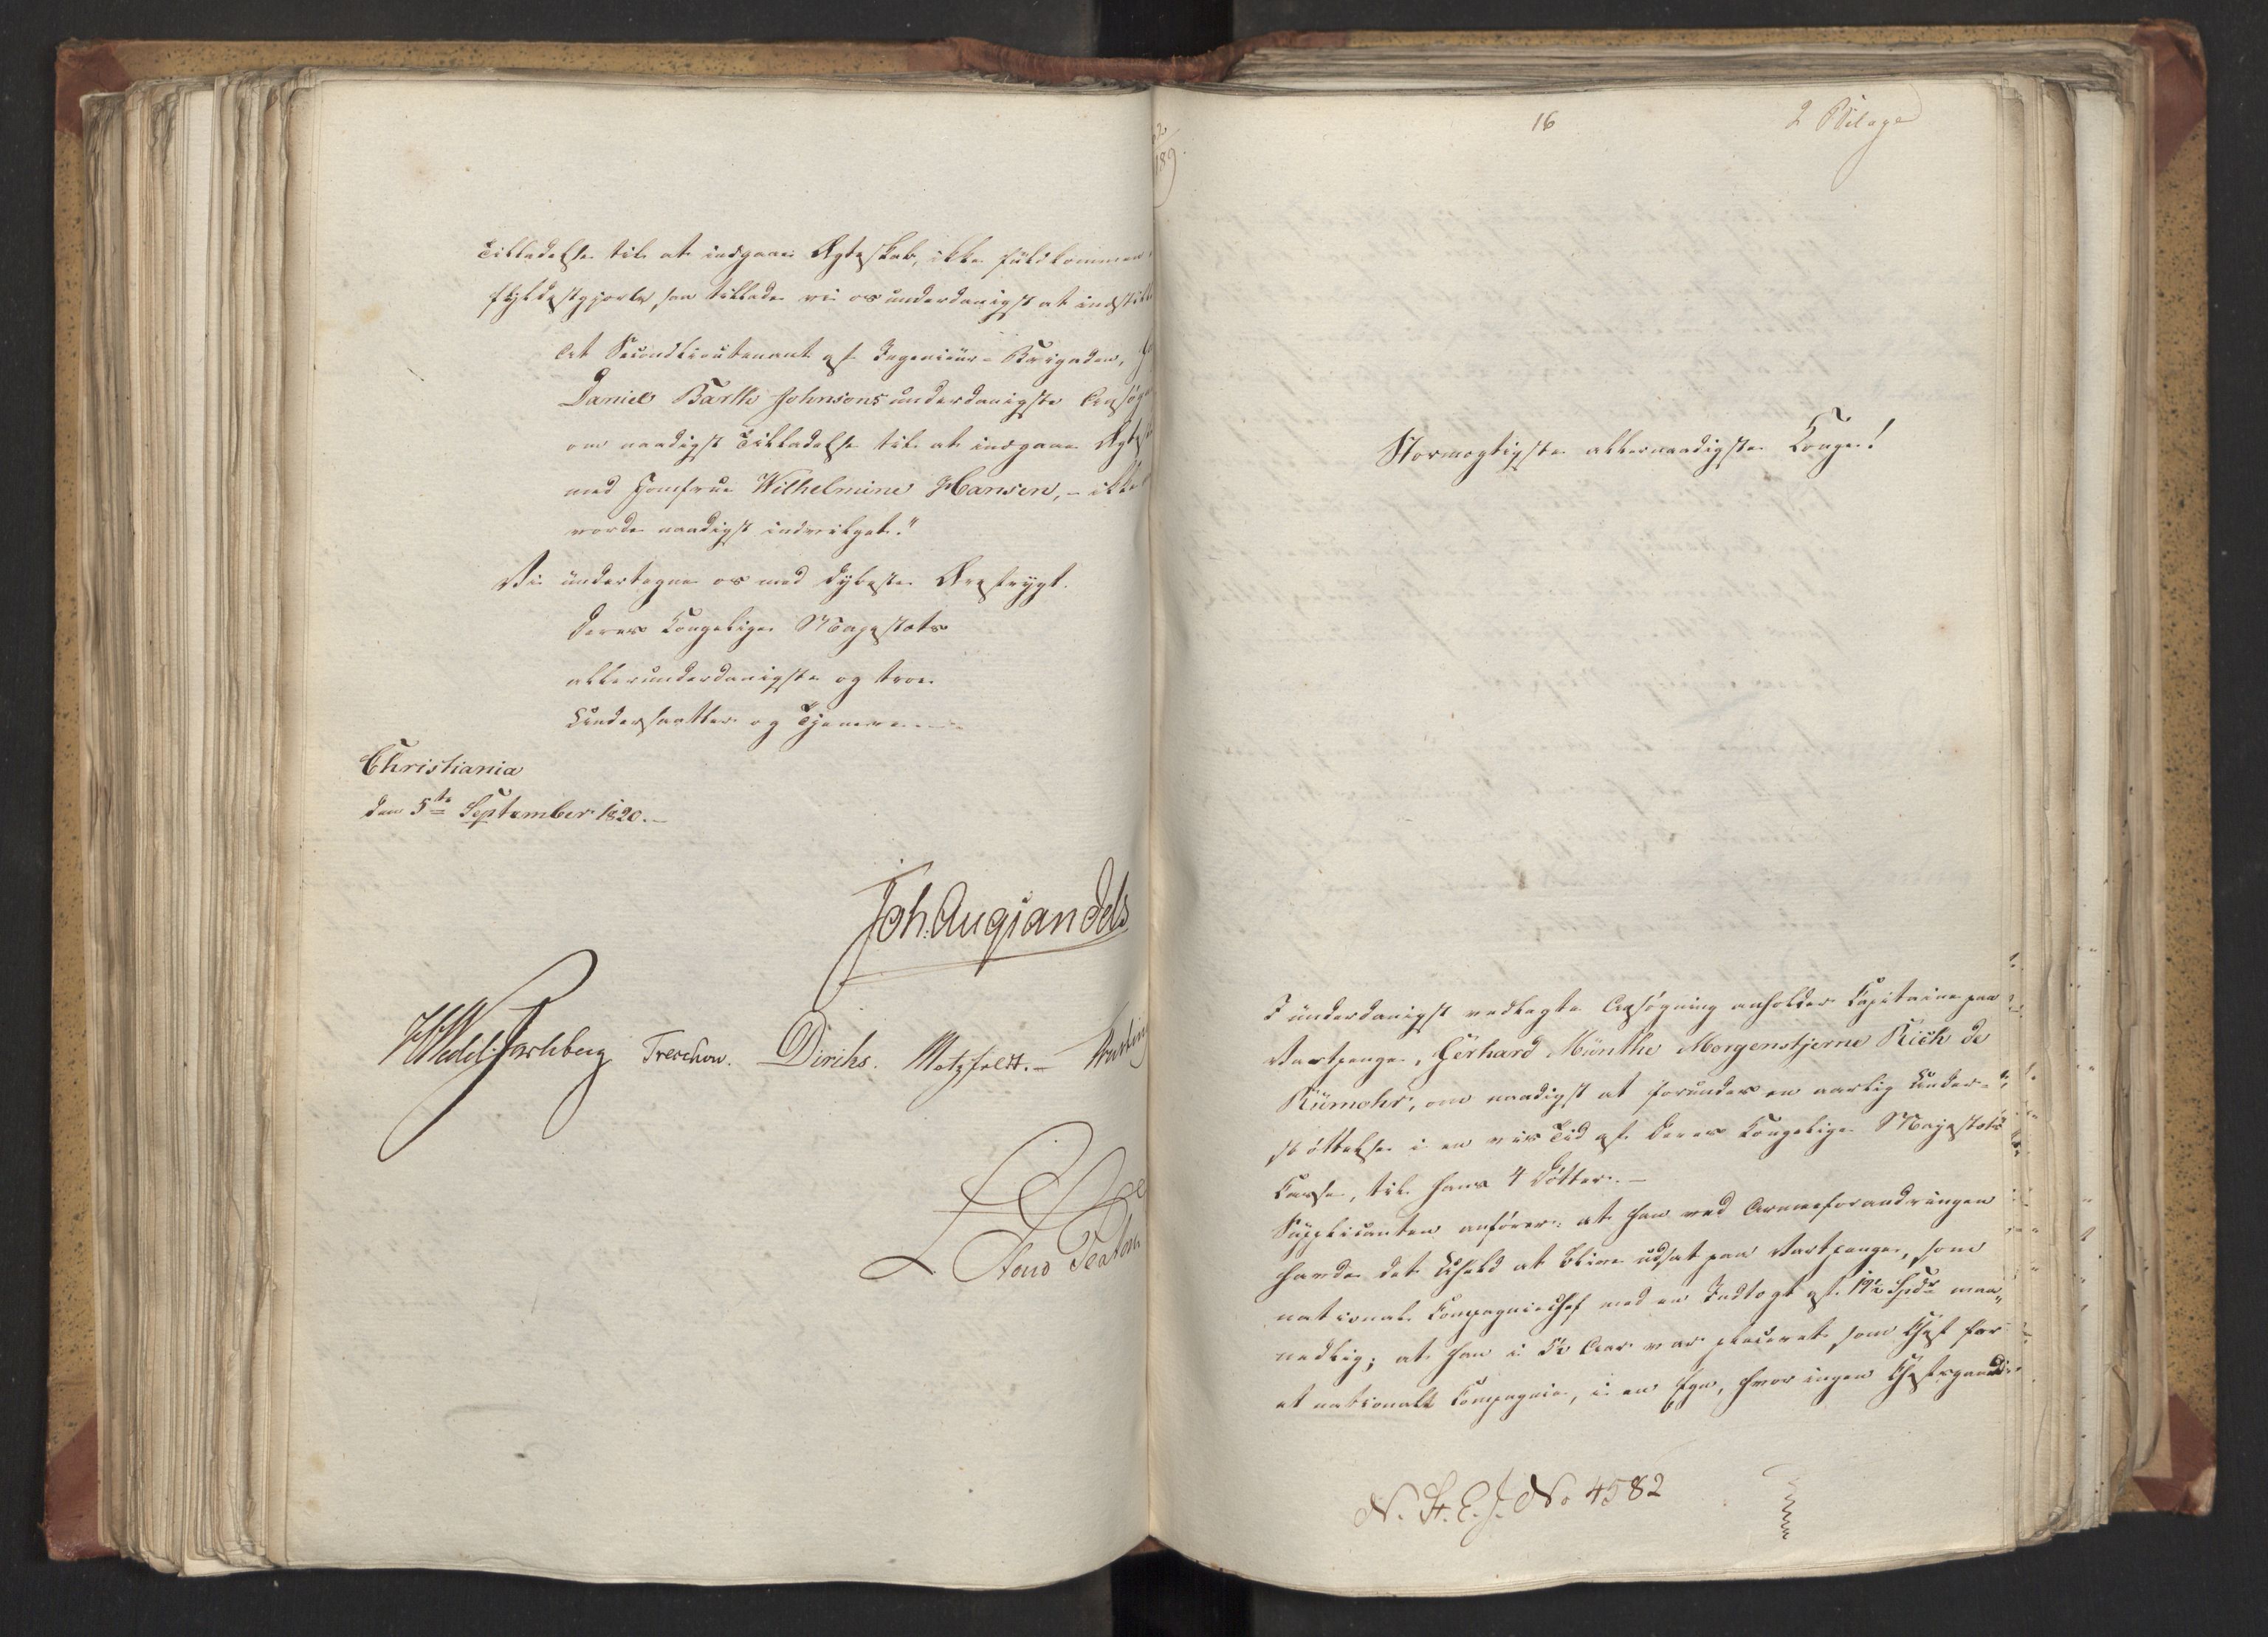 Tilladelse til at indgaae Ægteskab, ikke fuldkommen
fyldestgjorte, saa tillade vi os underdanigst at indstille
"at Secondlieutenant af Ingenieur-Brigaden,
Daniel Barth Johnsons underdanigste Ansøgn
om naadigst Tilladelse til at indgaae Ægtesk
med Jomfrue Wilhelmine Hansen, - ikke
vorde naadigst indvilget."
Vi undertegne os med dybeste Ærefrygt.
Deres Kongelige Majestæts
allerunderdanigste og troe
Undersaatter og Tjenere
Christiania
den 5te September 1820.-
Joh: Aug: Sandels
HWedel Jarlsberg Treschow. Diriks. Motzfeldt.-
16
2 Bilage
Stormægtigste allernaadigste Konge!
I underdanigst vedlagte Ansøgning anholder Capitaine paa
Vartpenge, Gerhard Münthe Morgenstjerne Rich de
Rümohr, om naadigst at forundes en aarlig Under-
støttelse i en vis Tid af Deres Kongelige Majestæts
Casse, til hans 4 Døttre.-
Supplicanten anfører: at han ved Armeeforandringen
havde det Uheld at blive udsat paa Vartpenge, som
national Compagniechef med en Indtægt af 19½ Spdr maa„
nedlig; at han i 5½ Aar var placeret som Chef for
et nationalt Compagnie, i en Egn, hvor ingen Chefsgaard
N. St. E. J. No 4582